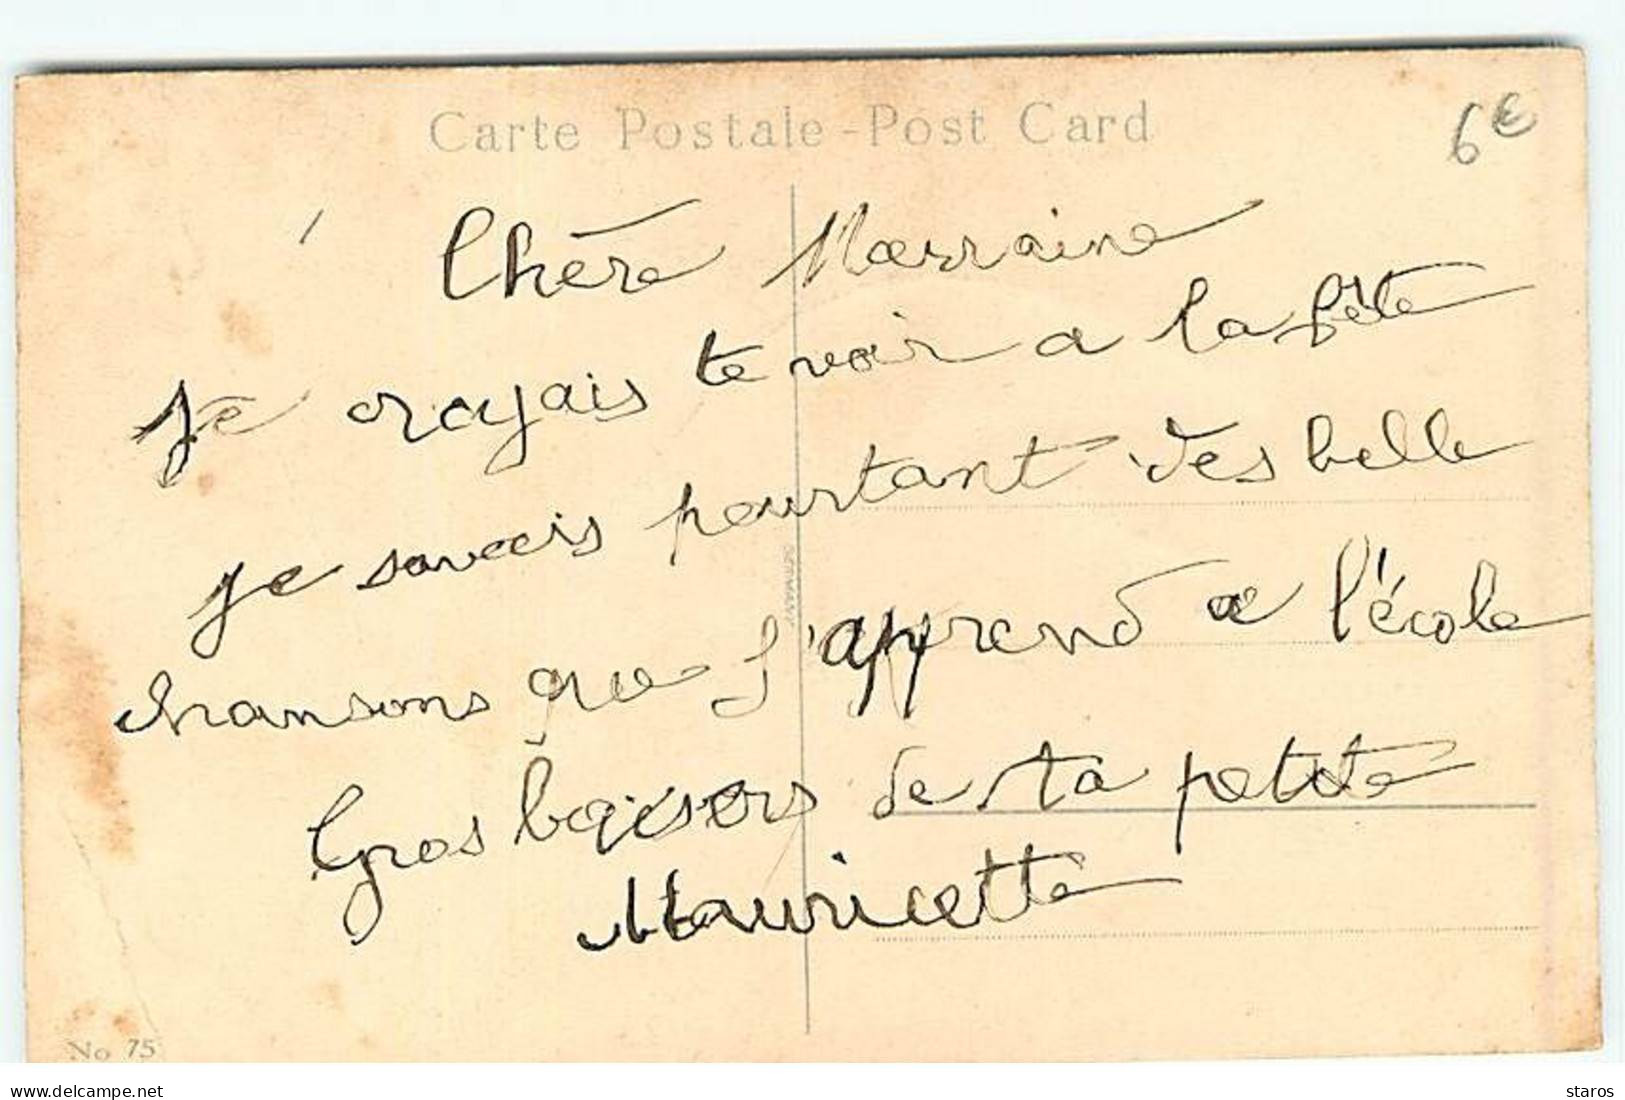 Carte Postale - Post Card
6€
Chère Marraine
Je croyais te voir a la fête
je savais pourtant des belle
chansons que j'apprend a l'école
Gros baisers de ta petite
Mauricette
GERMANY
No 75
delcampe.net
staros